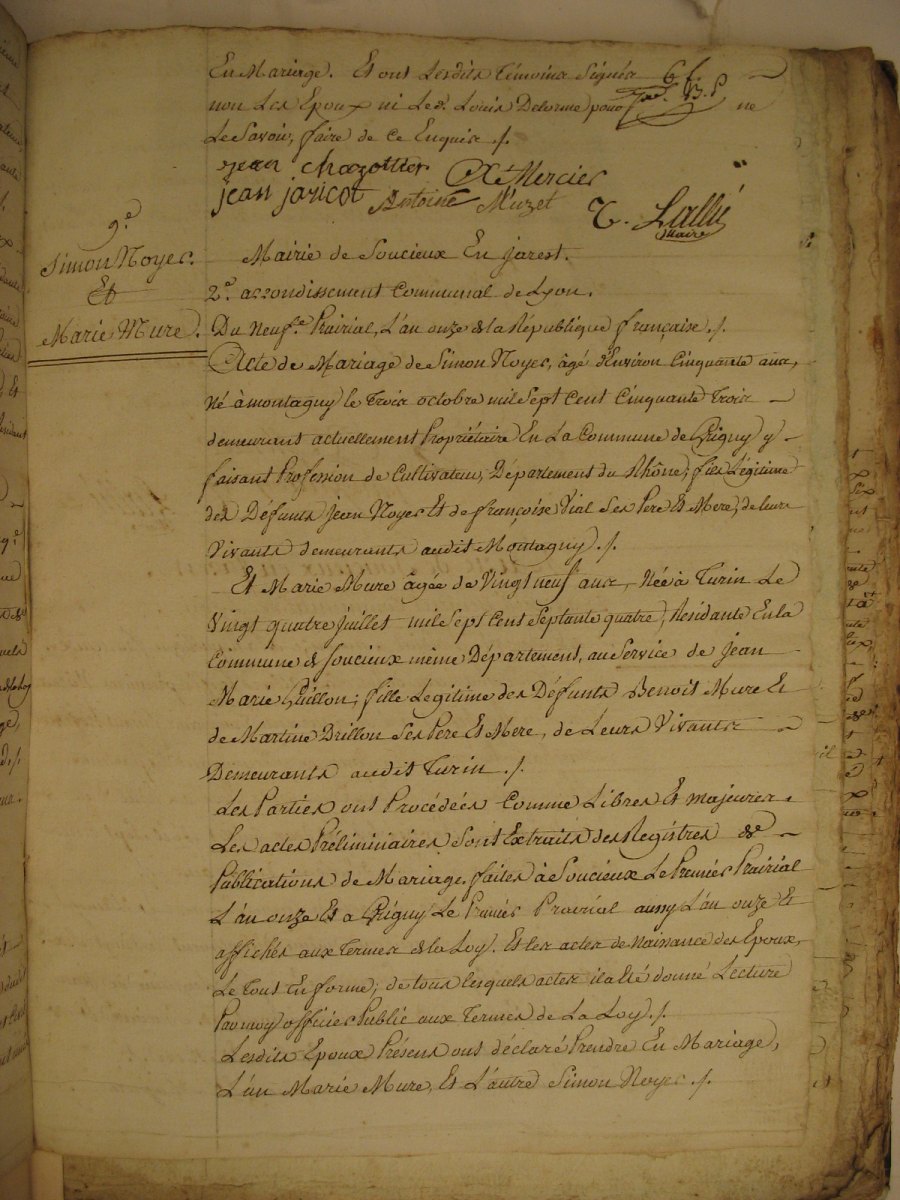 En Mariage. Et ont Lesdits Témoins Signés
non Les Epoux ni Led. Louis Delorme pour ne
Le Savoir, faire de ce Enquis ./.
jean chazottier
C. Mercier
jean jaricot Antoine Muzet
T. Lallié
Maire
9.e
Simon Noyer.
Et
Marie Mure.
Mairie de Soucieux En jarest.
2.e arrondissement Communal de Lyon.
Du Neuf.e Prairial, L'an onze de la République française ./.
Acte de Mariage de Simon Noyer, âgé d'Environ Cinquante ans,
Né à montagny le Trois octobre mil Sept Cent Cinquante Trois
demeurant actuellement Propriétaire En La Commune de Grigny y
faisant Profession de Cultivateur, Département du Rhône, fils Légitime
des Défunts Jean Noyer Et de françoise Vial Ses Pere Et Mere, de leurs
Vivants demeurants audit Montagny ./.
Et Marie Mure âgée de Vingt neuf ans, Née à Turin Le
Vingt quatre Juillet mil Sept Cent Septante quatre, Résidante En la
Commune de Soucieux même Département, au Service de Jean
Marie Guillon, fille Legitime des Défunts Benoît Mure Et
de Martine Drillon Ses Pere Et Mere, de Leurs Vivants
Demeurants audit Turin ./.
Les Parties ont Procédées Comme Libres Et majeures.
Les actes Préliminaires Sont Extraits des Registres de
Publications de Mariage faites à Soucieux Le Premier Prairial
L'an onze Et a Grigny Le Premier Prairial aussy L'an onze Et
affichés aux Termes de la Loy. Et les actes de naissance des Epoux,
Le Tout En forme; de tous lesquels actes il a été donné Lecture
Par moy officier Public aux Termes de La Loy ./.
Lesdits Epoux Présens ont déclaré Prendre En Mariage,
L'un Marie Mure, Et L'autre Simon Noyer ./.